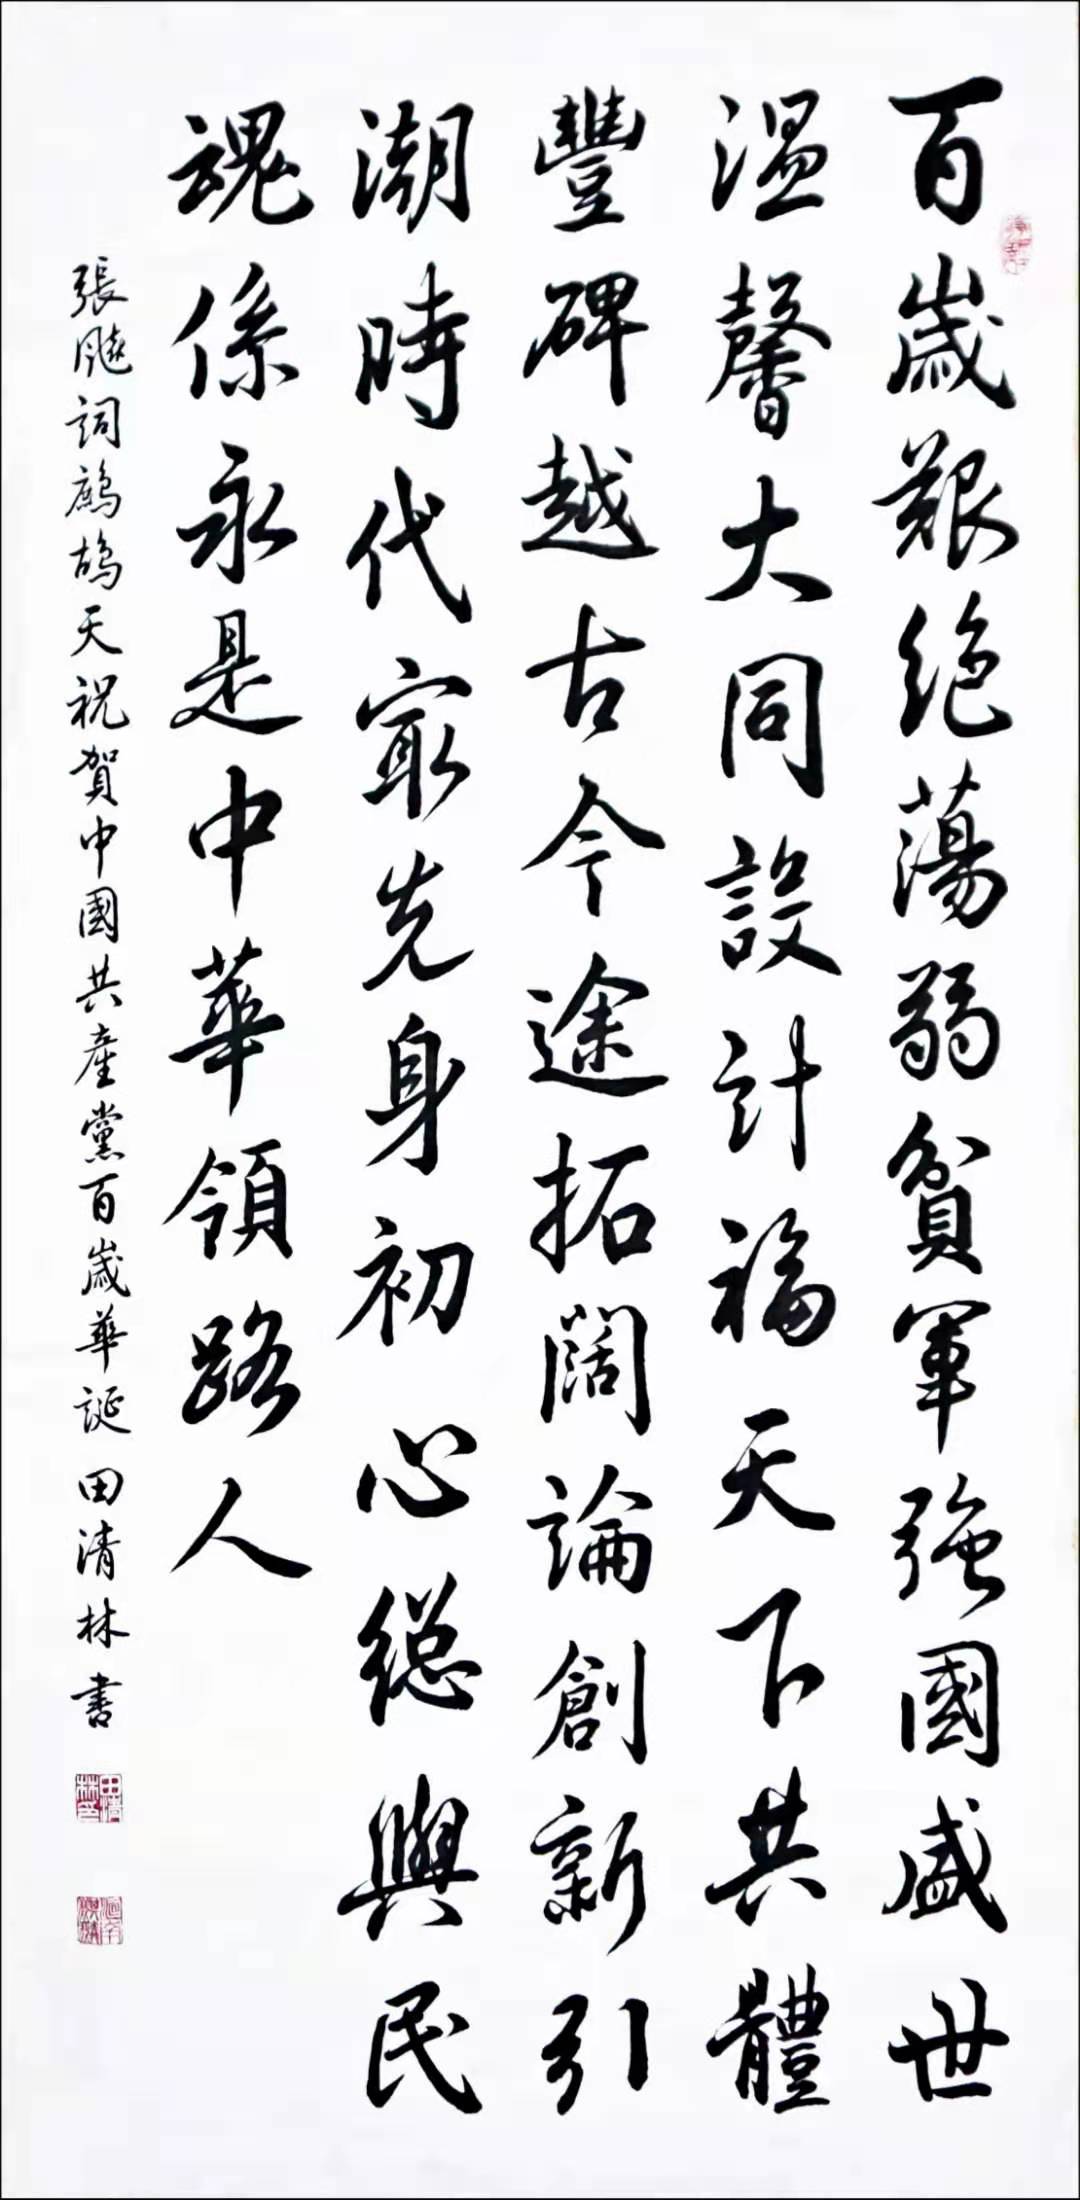 百歲艱絕蕩弱貧軍強國盛世
溫馨大同設計福天下共體
豐碑越古今途拓闊論創新引
潮時代最先身初心總與民
魂係永是中華領路人
張飈詞鷓鴣天祝賀中國共產黨百歲華誕 田清林書
田清林印